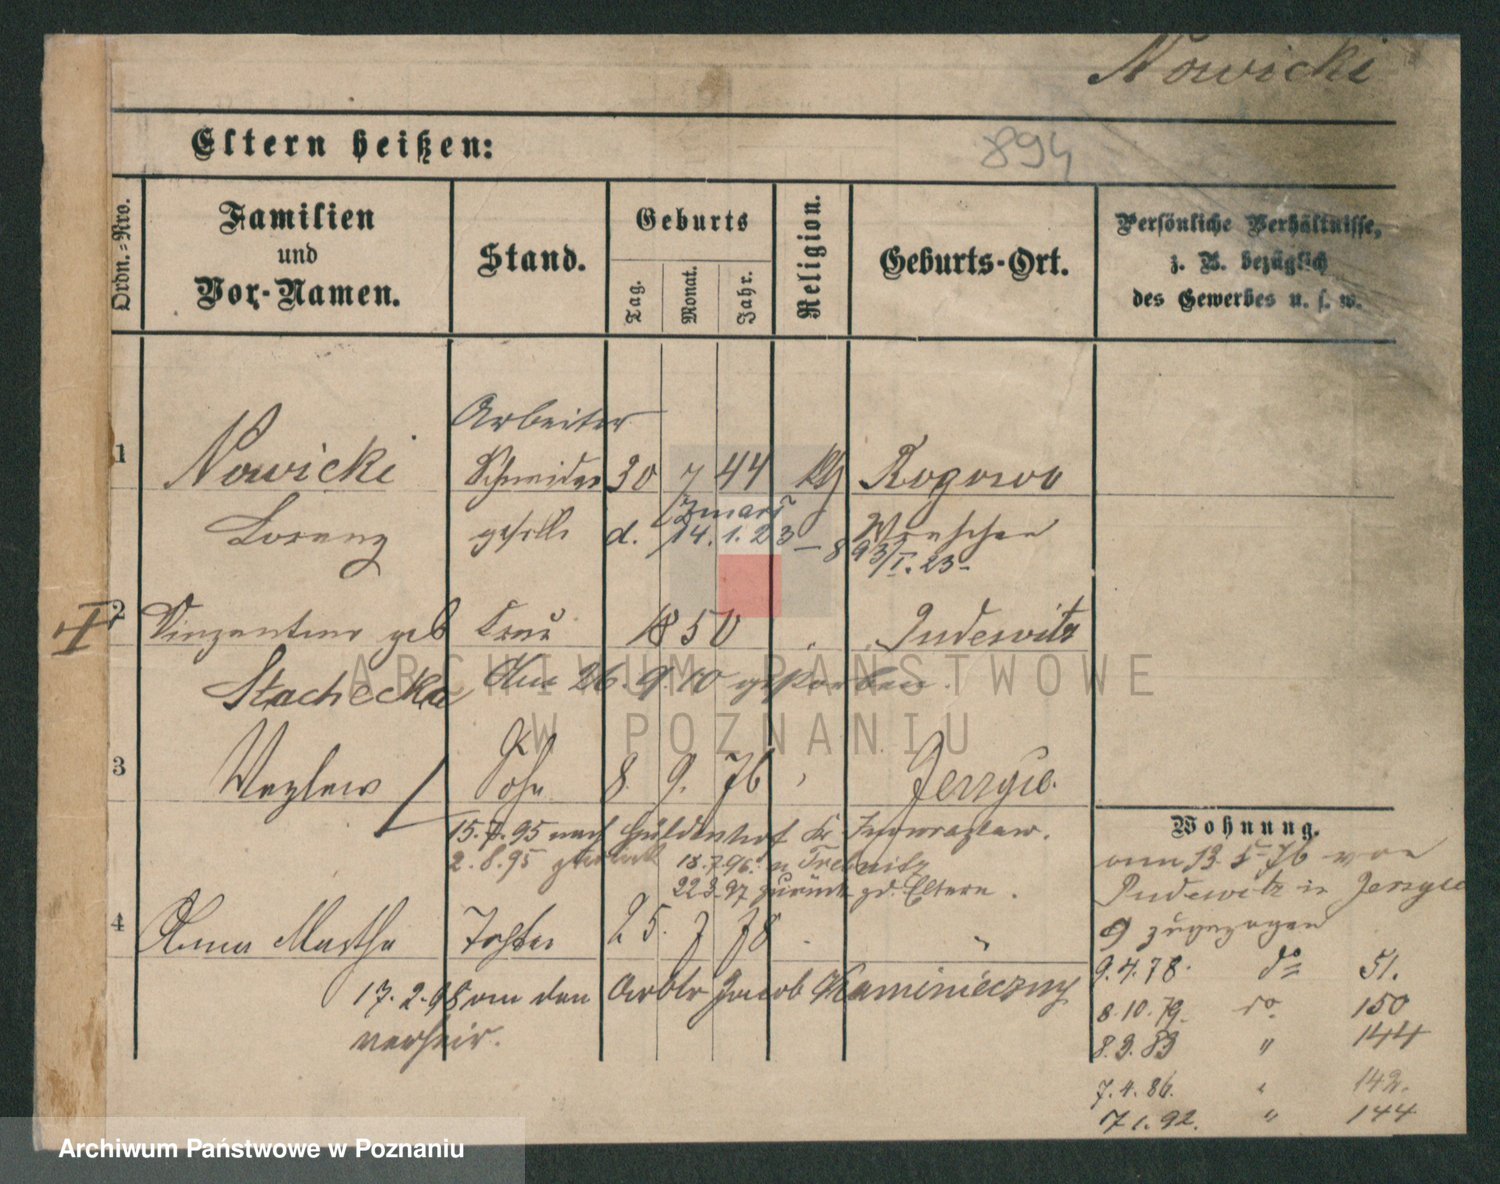 Nowicki
894
Eltern heißen:
Ordn.-Nro.
Familien
und
Vor-Namen.
Stand.
Geburts
Tag.
Monat.
Jahr.
Religion.
Geburts-Ort.
Persönliche Verhältnisse,
z. B. bezüglich
des Gewerbes u. s. w.
Arbeiter
1 Nowicki Schneider 30 7 44 kth Rogowo
Lorenz geselle d. 14.1.23 Wreschen
893/I.23
2 geb Frau 1850 " Pudewitz
Stachecka Am 26.9.10 gestorben.
3 Wazlaw Sohn 8. 9. 76 " Jerzyce.
15.7.95 nach Güldenhof Kr Inowrazlaw.
2.8.95 zurück 18.7.96. n Trebnitz
22.3.97 zurück zd. Eltern.
4 Anna Martha Tochter 25. 7 78 "
17.2.98 an den Arbtr Jacob Kaminieczny
verheir.
Wohnung.
am 13.5.76 von
Pudewitz in Jerzyce
9 zugezogen
9.4.78. do 51.
8.10.79. do. 150
8.3.83 " 144
7.4.86. " 142.
7.1.92. " 144
ARCHIWUM PAŃSTWOWE
W POZNANIU
Archiwum Państwowe w Poznaniu